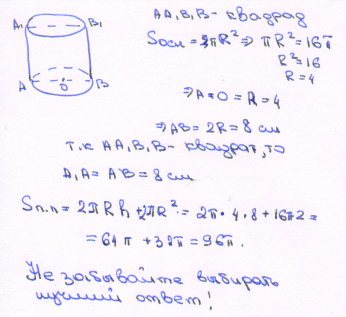 A₁ B₁
A O B
AA₁B₁B - квадрад
Sосн = πR² ⇒ πR² = 16π
R² = 16
R = 4
⇒ AO = R = 4
⇒ AB = 2R = 8 см
т.к AA₁B₁B - квадрат, то
A₁A = AB = 8 см
Sп.п = 2πRh + 2πR² = 2π · 4 · 8 + 16π2 =
= 64π + 32π = 96π.
Не забывайте выбирать
лучший ответ!